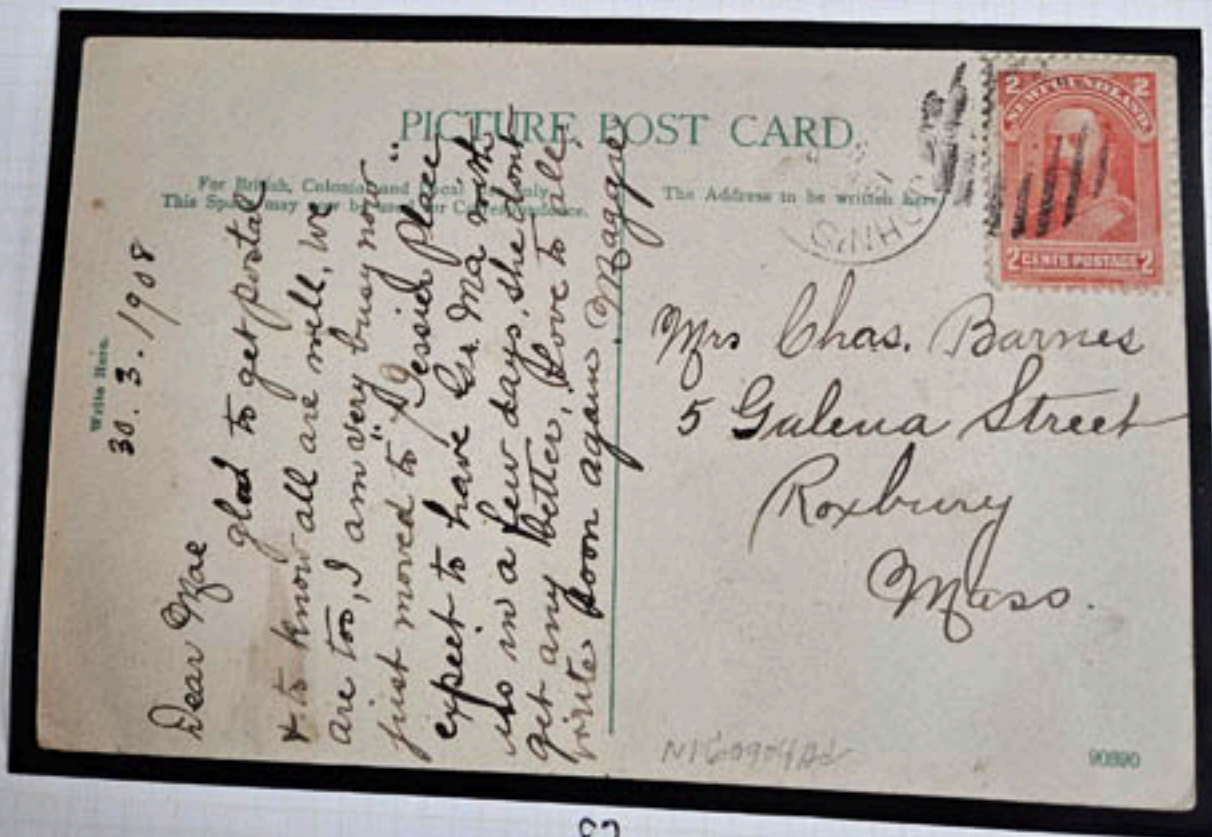 PICTURE POST CARD
For British, Colonial and Local only.
This Space may now be used for Correspondence.
The Address to be written here
Write Here.
30. 3. 1908
Dear Mae
glad to get postal
& to know all are well, We
are too, I am very busy now
just moved to "7 Tessier Place"
expect to have Gr. Ma with
us in a few days. she dont
get any better, Love to all,
write soon again, Maggie
2 2
NEWFOUNDLAND
2 CENTS POSTAGE 2
Mrs Chas. Barnes
5 Galena Street
Roxbury
Mass.
90890